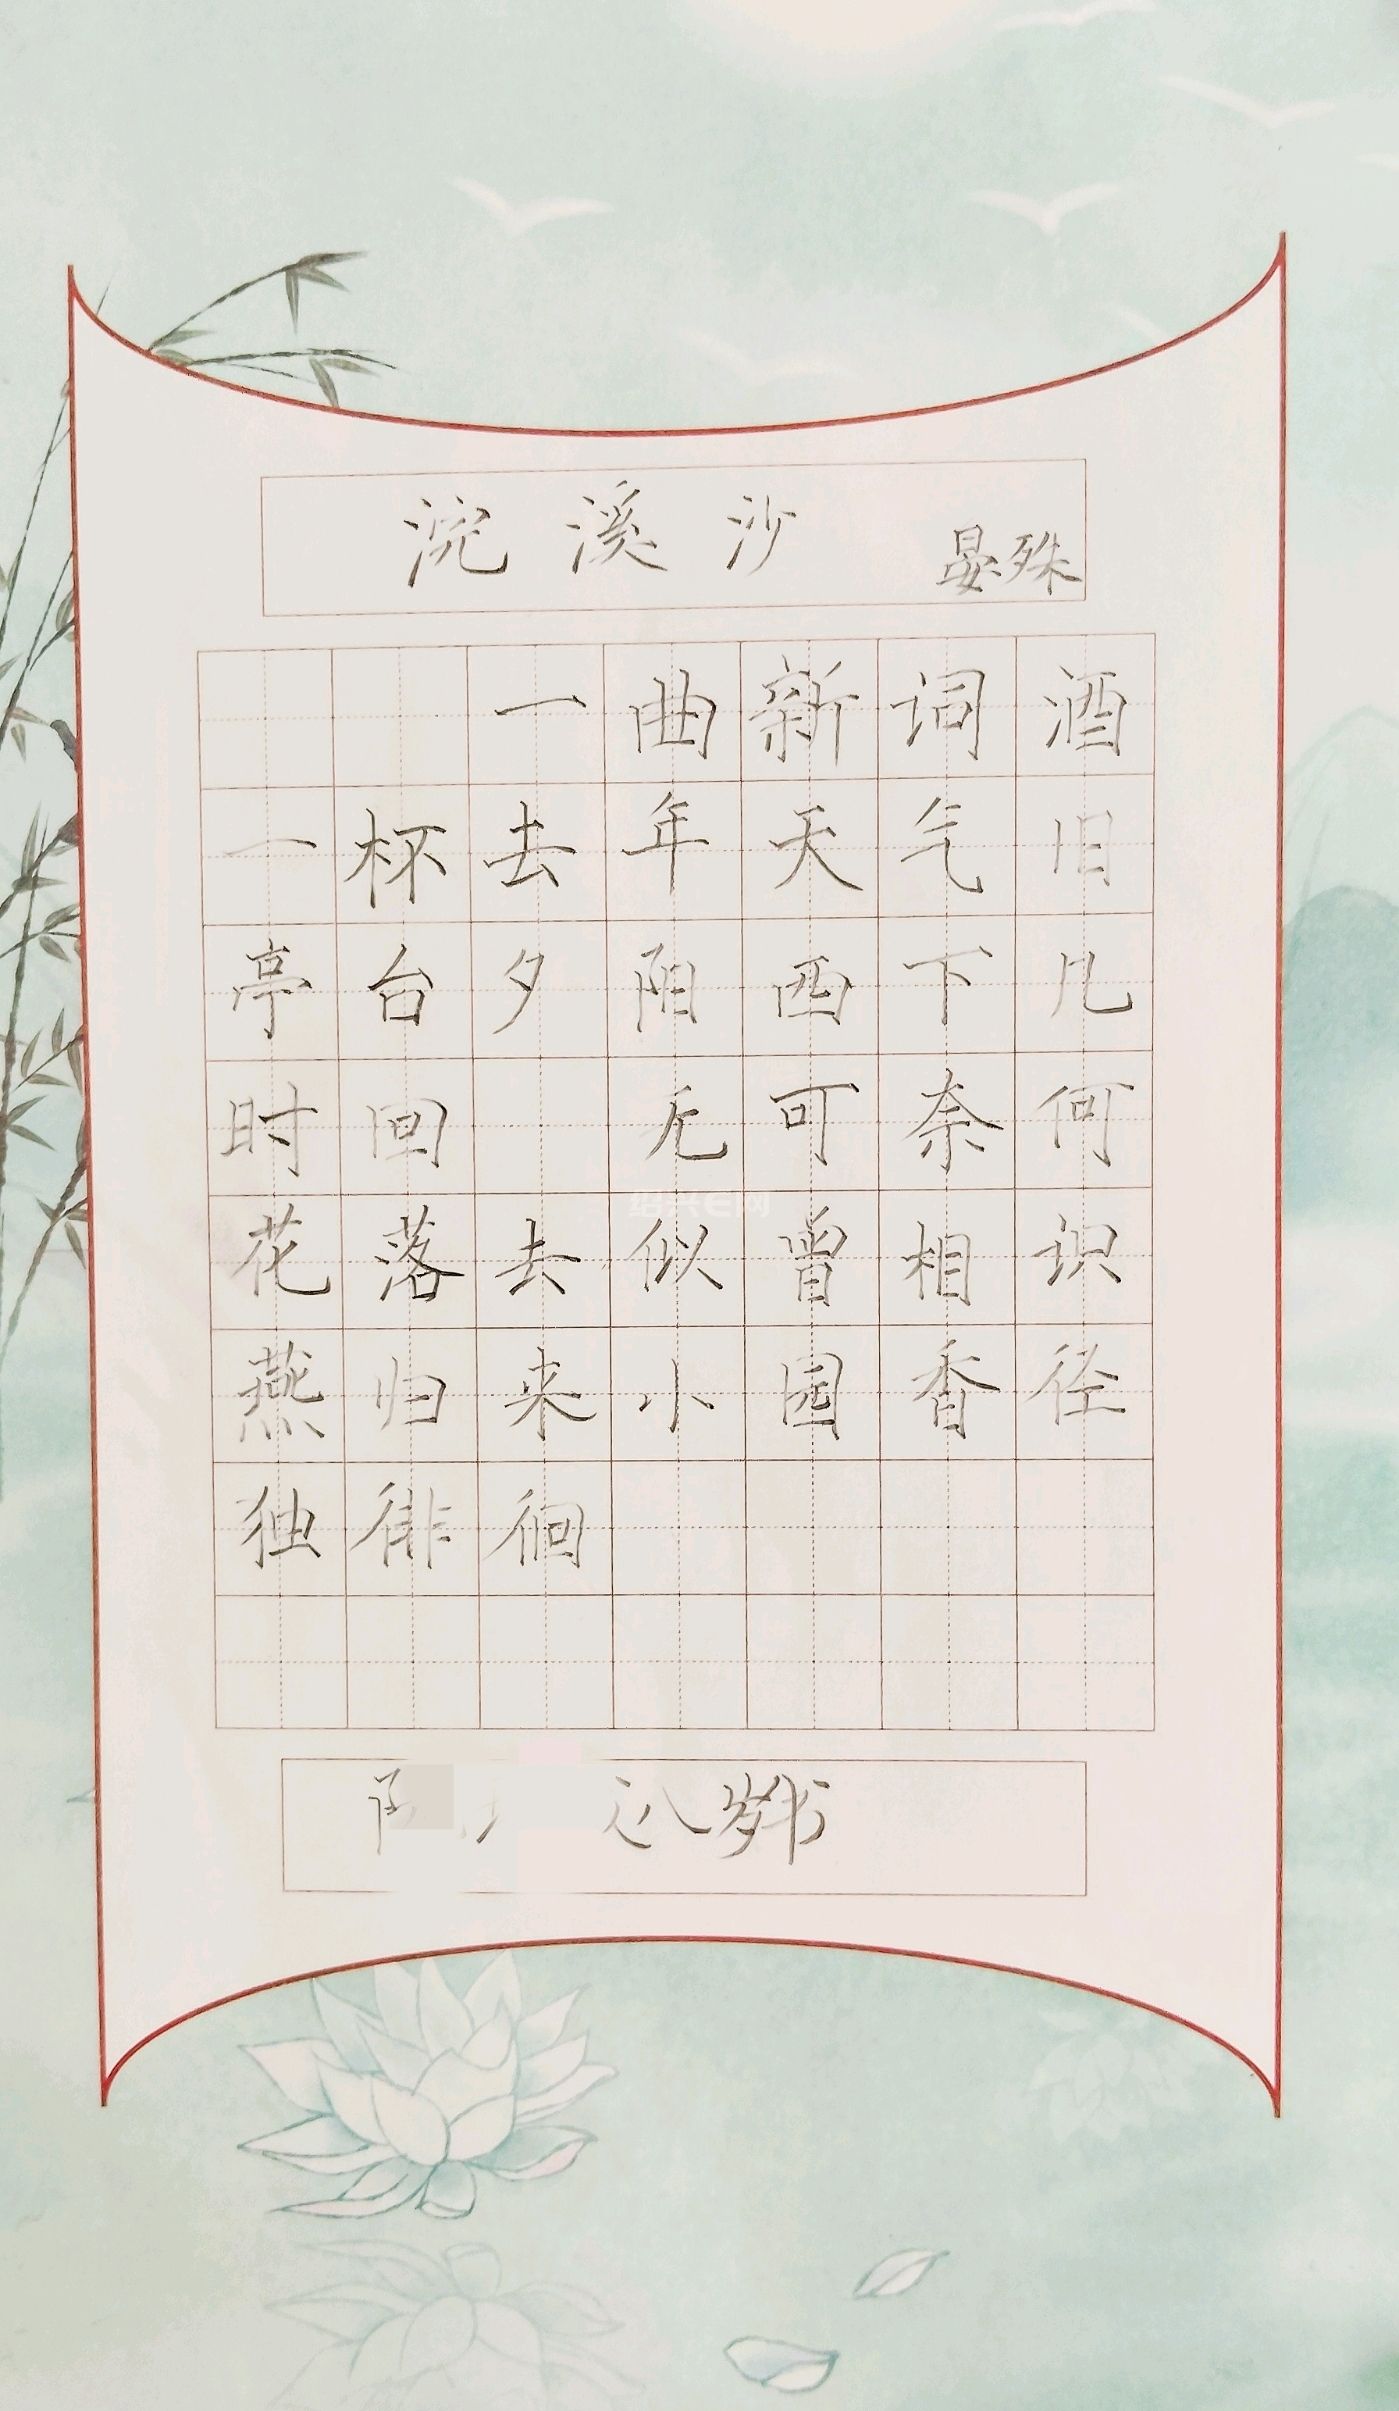 浣溪沙 晏殊
一曲新词酒
一杯去年天气旧
亭台夕阳西下几
时回 无可奈何
花落去似曾相识
燕归来小园香径
独徘徊
八岁书
绍兴E网